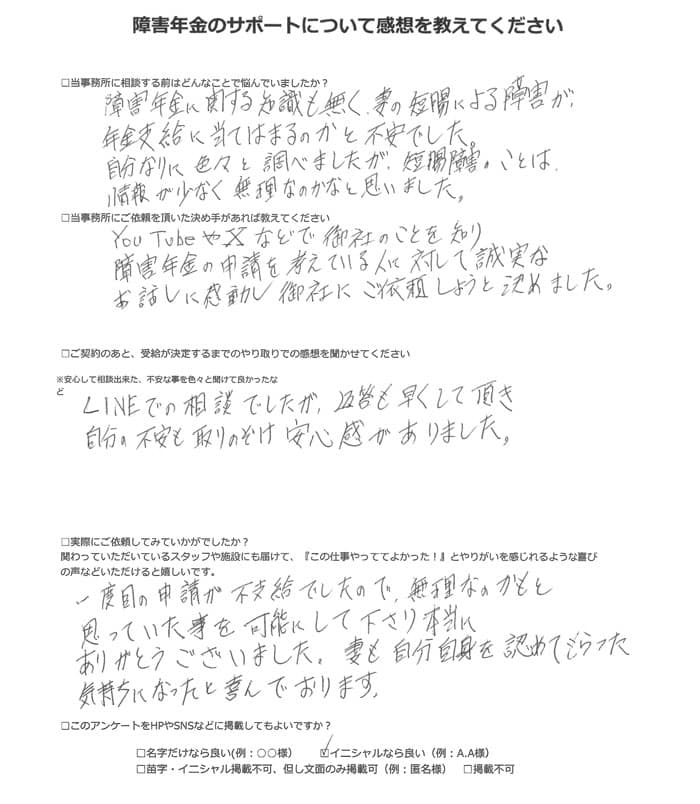 障害年金のサポートについて感想を教えてください
□当事務所に相談する前はどんなことで悩んでいましたか？
障害年金に関する知識も無く、妻の短腸による障害が、
年金支給に当てはまるのかと不安でした。
自分なりに色々と調べましたが、短腸障害のことは、
情報が少なく無理なのかなと思いました。
□当事務所にご依頼を頂いた決め手があれば教えてください
YouTubeやXなどで御社のことを知り
障害年金の申請を考えている人に対して誠実な
お話しに感動し御社にご依頼しようと決めました。
□ご契約のあと、受給が決定するまでのやり取りでの感想を聞かせてください
※安心して相談出来た、不安な事を色々と聞けて良かったな
ど
LINEでの相談でしたが、返答も早くして頂き
自分の不安も取りのぞけ安心感がありました。
□実際にご依頼してみていかがでしたか？
関わっていただいているスタッフや施設にも届けて、『この仕事やっててよかった！』とやりがいを感じれるような喜び
の声などいただけると嬉しいです。
一度目の申請が不支給でしたので、無理なのかもと
思っていた事を可能にして下さり本当に
ありがとうございました。妻も自分自身を認めてもらった
気持ちになったと喜んでおります。
□このアンケートをHPやSNSなどに掲載してもよいですか？
□名字だけなら良い(例：〇〇様） ☑イニシャルなら良い（例：A.A様）
□苗字・イニシャル掲載不可、但し文面のみ掲載可（例：匿名様） □掲載不可